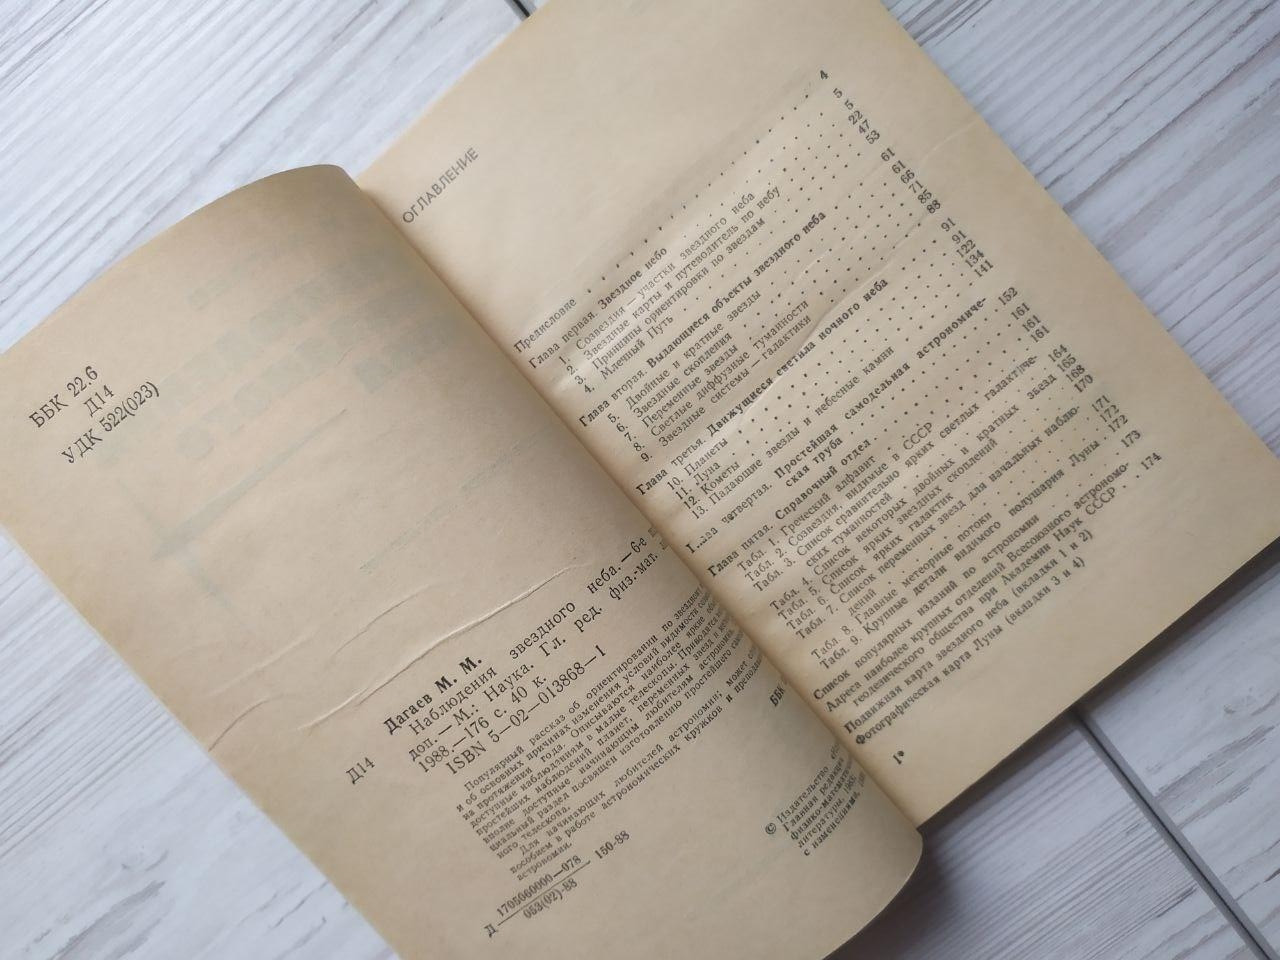 ББК 22.6
Д14
УДК 522(023)
Дагаев М. М.
Д14 Наблюдения звездного неба.—6-е
доп.—М.: Наука. Гл. ред. физ.-мат.
1988.—176 с. 40 к.
ISBN 5—02—013868—1
Популярный рассказ об ориентировании по звездному
и об основных причинах изменения условий видимости
на протяжении года. Описываются наиболее яркие
доступные наблюдениям в малые телескопы. Приводятся
простейших наблюдений планет, переменных звезд и
вполне доступные начинающим любителям астрономии.
циальный раздел посвящен изготовлению простейшего
ного телескопа.
Для начинающих любителей астрономии; может
пособием в работе астрономических кружков и
астрономии.
Д 1705060000—078 150-88
053(02)-88
ББК
© Издательство
Главная редакция
физико-математической
литературы,
с изменениями,
ОГЛАВЛЕНИЕ
Предисловие 4
Глава первая. Звездное небо 5
1. Созвездия — участки звездного неба 5
2. Звездные карты и путеводитель по небу 22
3. Принципы ориентировки по звездам 47
4. Млечный Путь 53
Глава вторая. Выдающиеся объекты звездного неба 61
5. Двойные и кратные звезды 61
6. Звездные скопления 66
7. Переменные звезды 71
8. Светлые диффузные туманности 85
9. Звездные системы — галактики 88
Глава третья. Движущиеся светила ночного неба 91
10. Планеты 91
11. Луна 122
12. Кометы 134
13. Падающие звезды и небесные камни 141
Глава четвертая. Простейшая самодельная астрономиче-
ская труба 152
Глава пятая. Справочный отдел 161
Табл. 1. Греческий алфавит 161
Табл. 2. Созвездия, видимые в СССР 161
Табл. 3. Список сравнительно ярких светлых галактиче-
ских туманностей 164
Табл. 4. Список некоторых двойных и кратных звезд 165
Табл. 5. Список ярких звездных скоплений 168
Табл. 6. Список ярких галактик 170
Табл. 7. Список переменных звезд для начальных наблю-
дений 171
Табл. 8. Главные метеорные потоки 172
Табл. 9. Крупные детали видимого полушария Луны 172
Список популярных изданий по астрономии 173
Адреса наиболее крупных отделений Всесоюзного астрономо-
геодезического общества при Академии Наук СССР 174
Подвижная карта звездного неба (вкладки 1 и 2)
Фотографическая карта Луны (вкладки 3 и 4)
1*